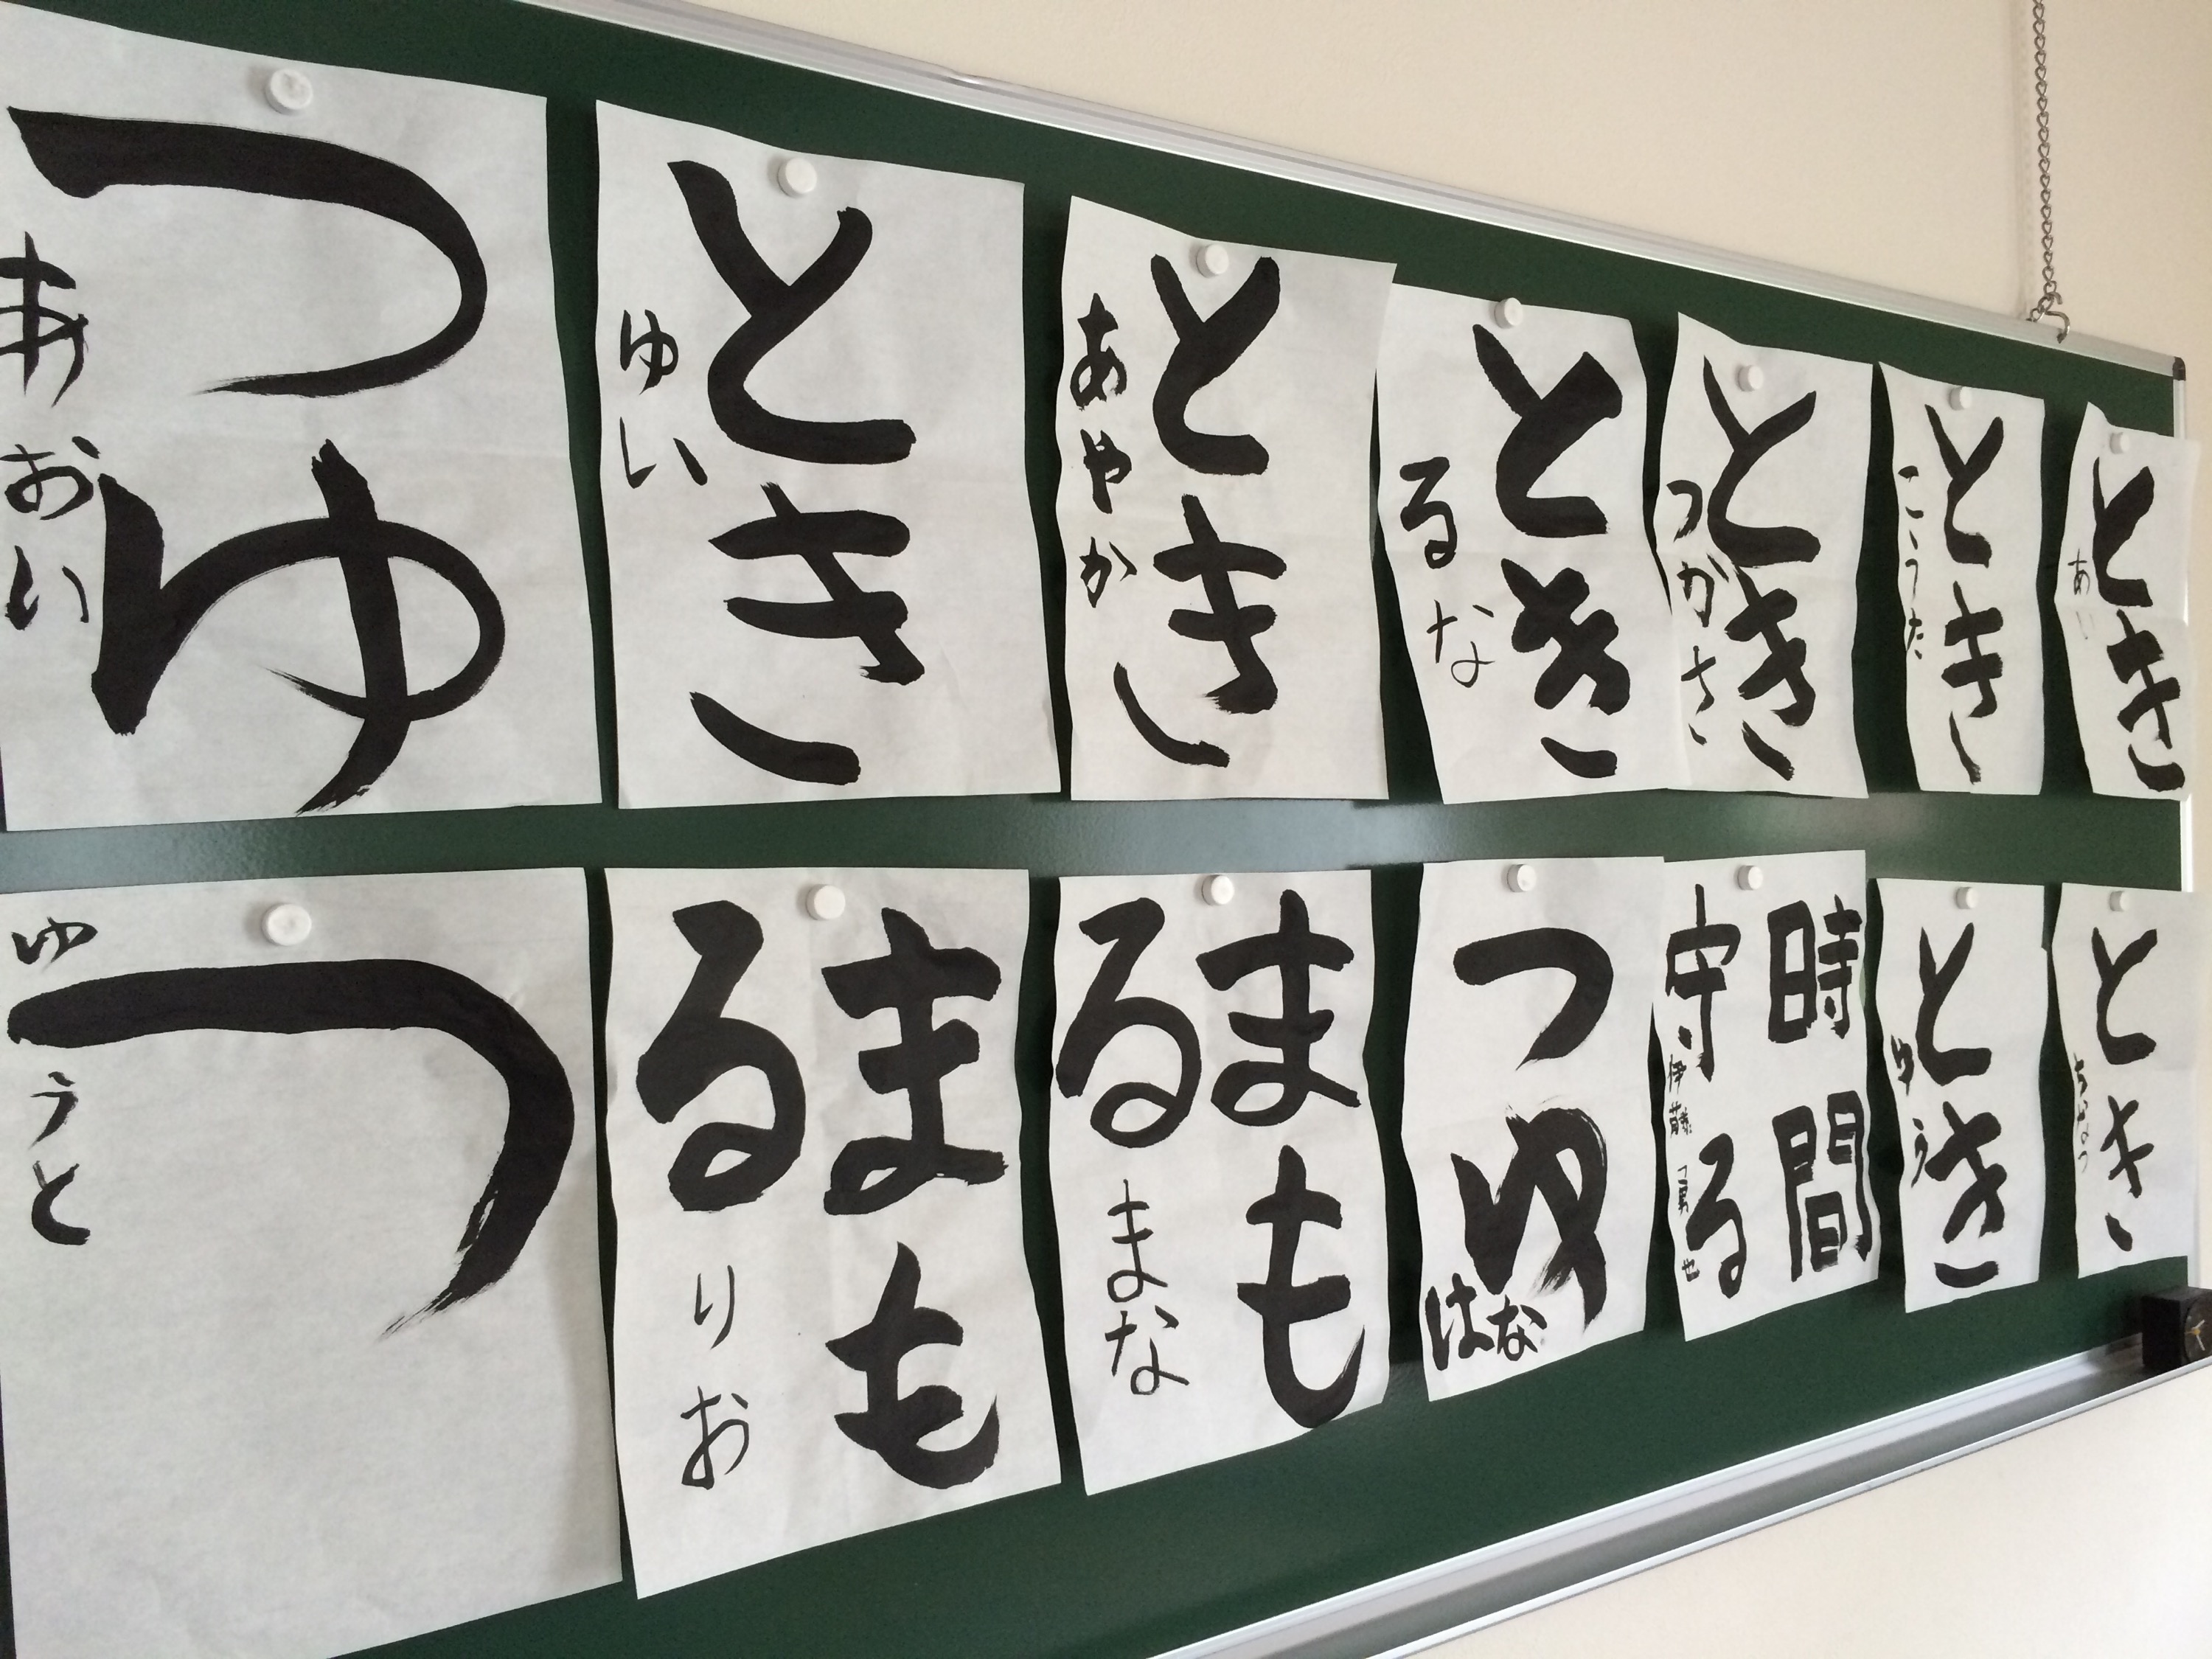 つゆ
あおい
とき
ゆい
とき
あやか
とき
るな
とき
つかさ
とき
こうた
とき
あい
つ
ゆうと
まも
る
りお
まも
る
まな
つゆ
はな
時間
守る
伊藤
とき
ゆう
とき